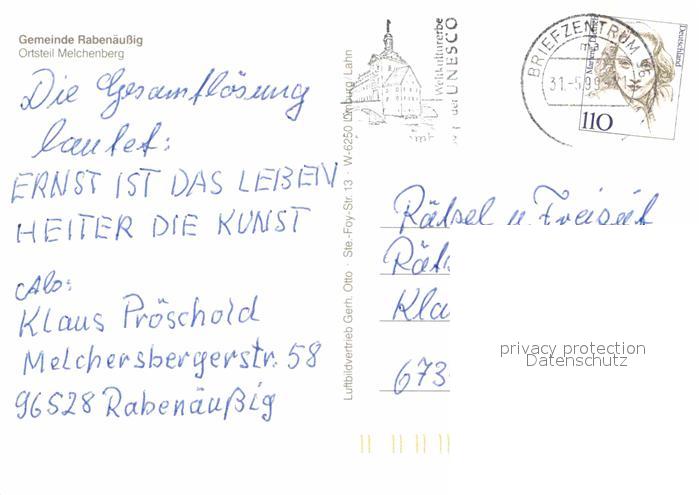 Gemeinde Rabenäußig
Ortsteil Melchenberg
Die Gesamtlösung
lautet:
ERNST IST DAS LEBEN
HEITER DIE KUNST
Abs:
Klaus Pröschold
Melchersbergerstr. 58
96528 Rabenäußig
Luftbildvertrieb Gerh. Otto · Ste.-Foy-Str. 13 · W-6250 Limburg/Lahn
Weltkulturerbe
der UNESCO
BRIEFZENTRUM 96
31.-5.99
Deutschland
110
Rätsel u. Freizeit
Rät
Kla
673
privacy protection
Datenschutz